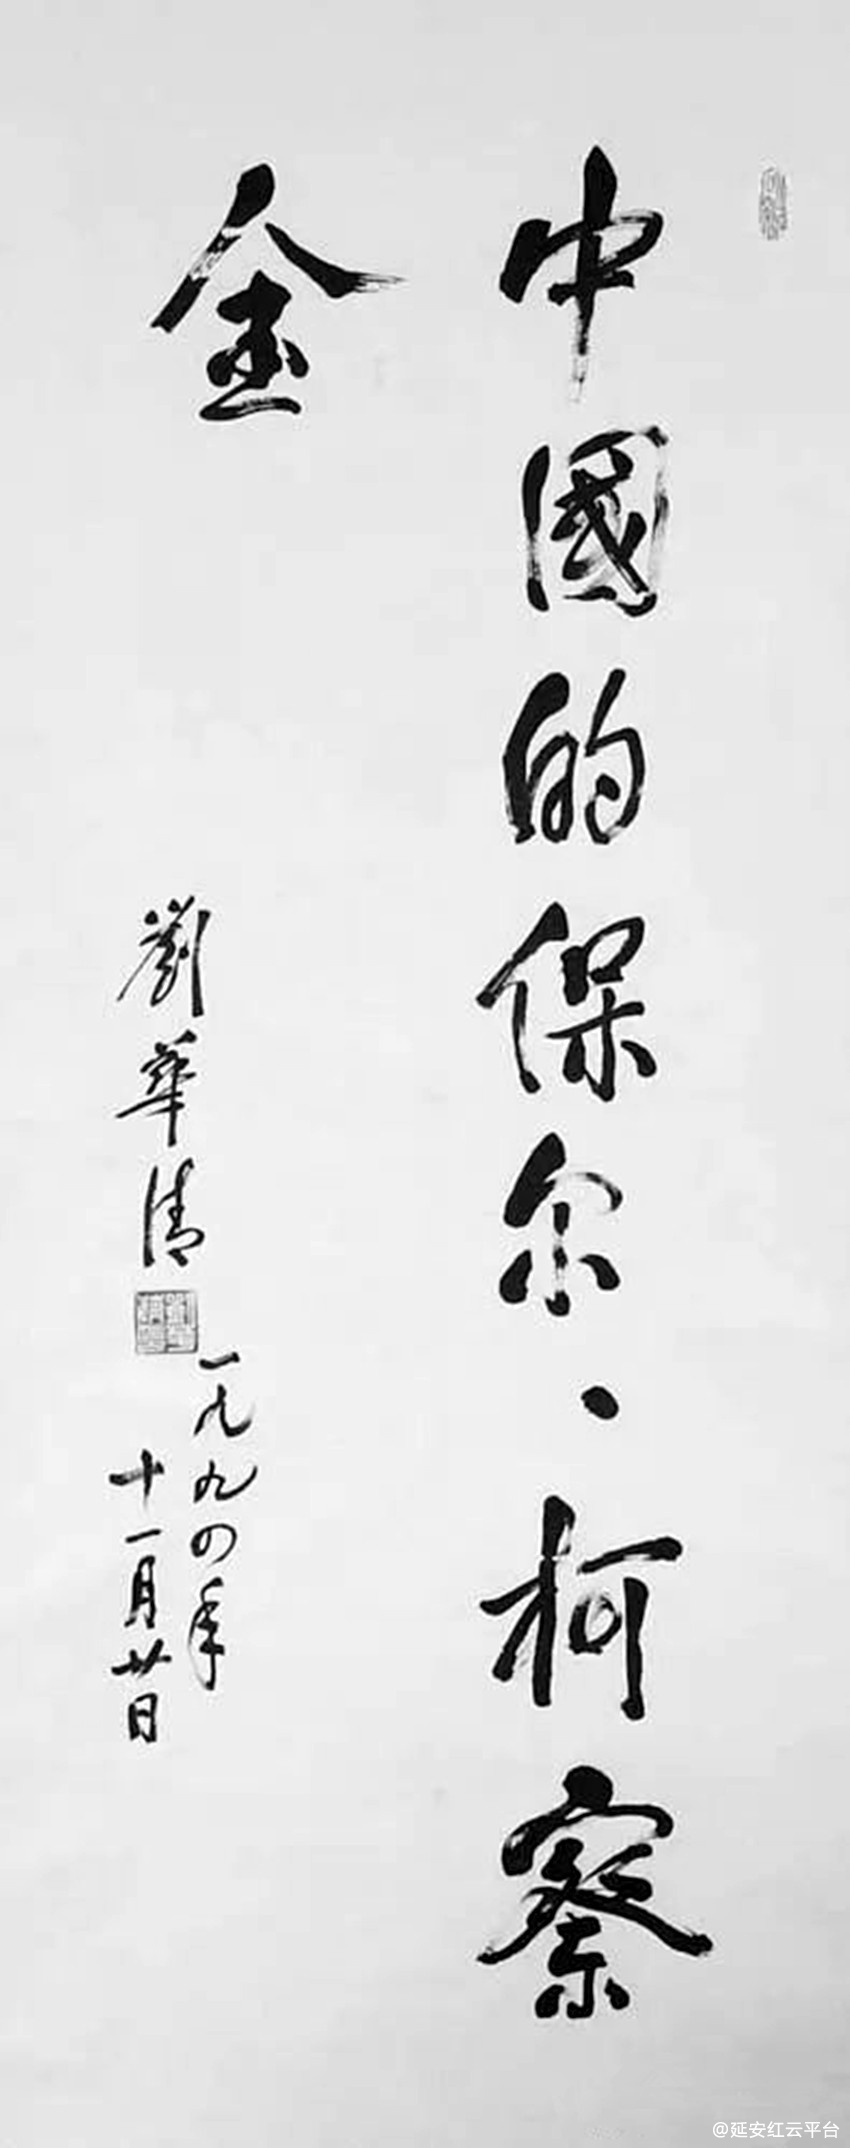 中國的保尔、柯察
金
劉華清
一九九四年
十一月廿日
@延安红云平台